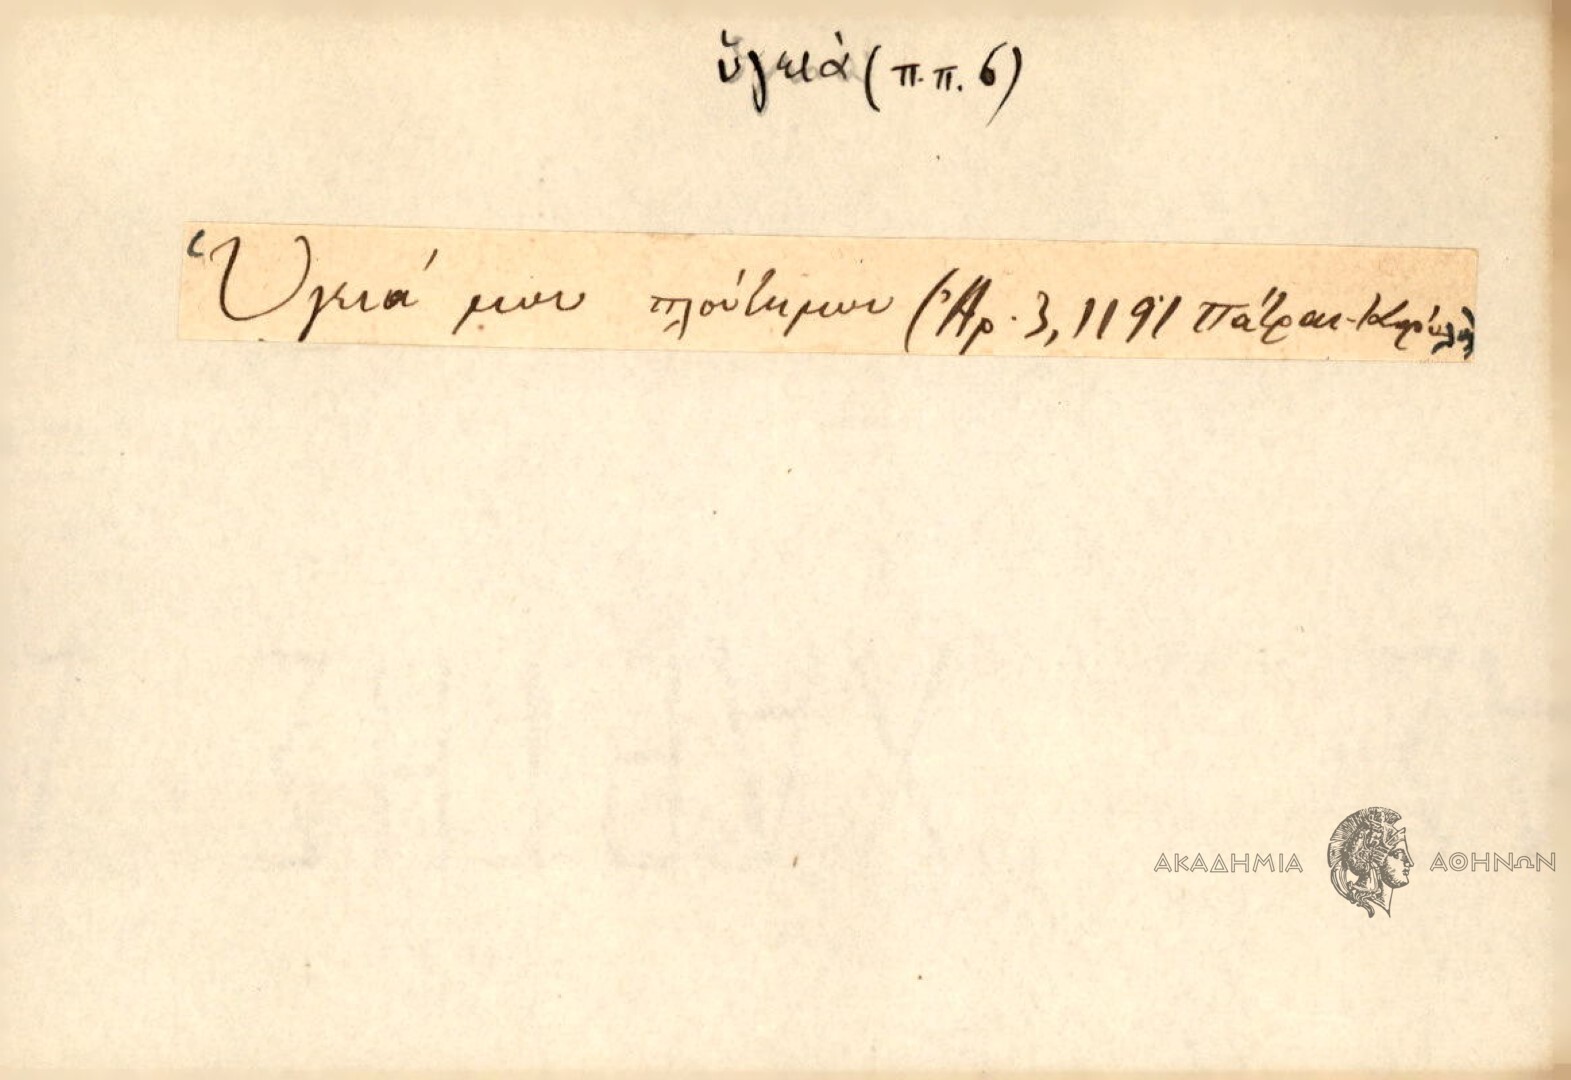 ὑγειὰ (π.π. 6)
Ὑγειά μου πλούτη μου (Ἀρ. 3, 1191 Πάτραι-
ΑΚΑΔΗΜΙΑ ΑΘΗΝΩΝ